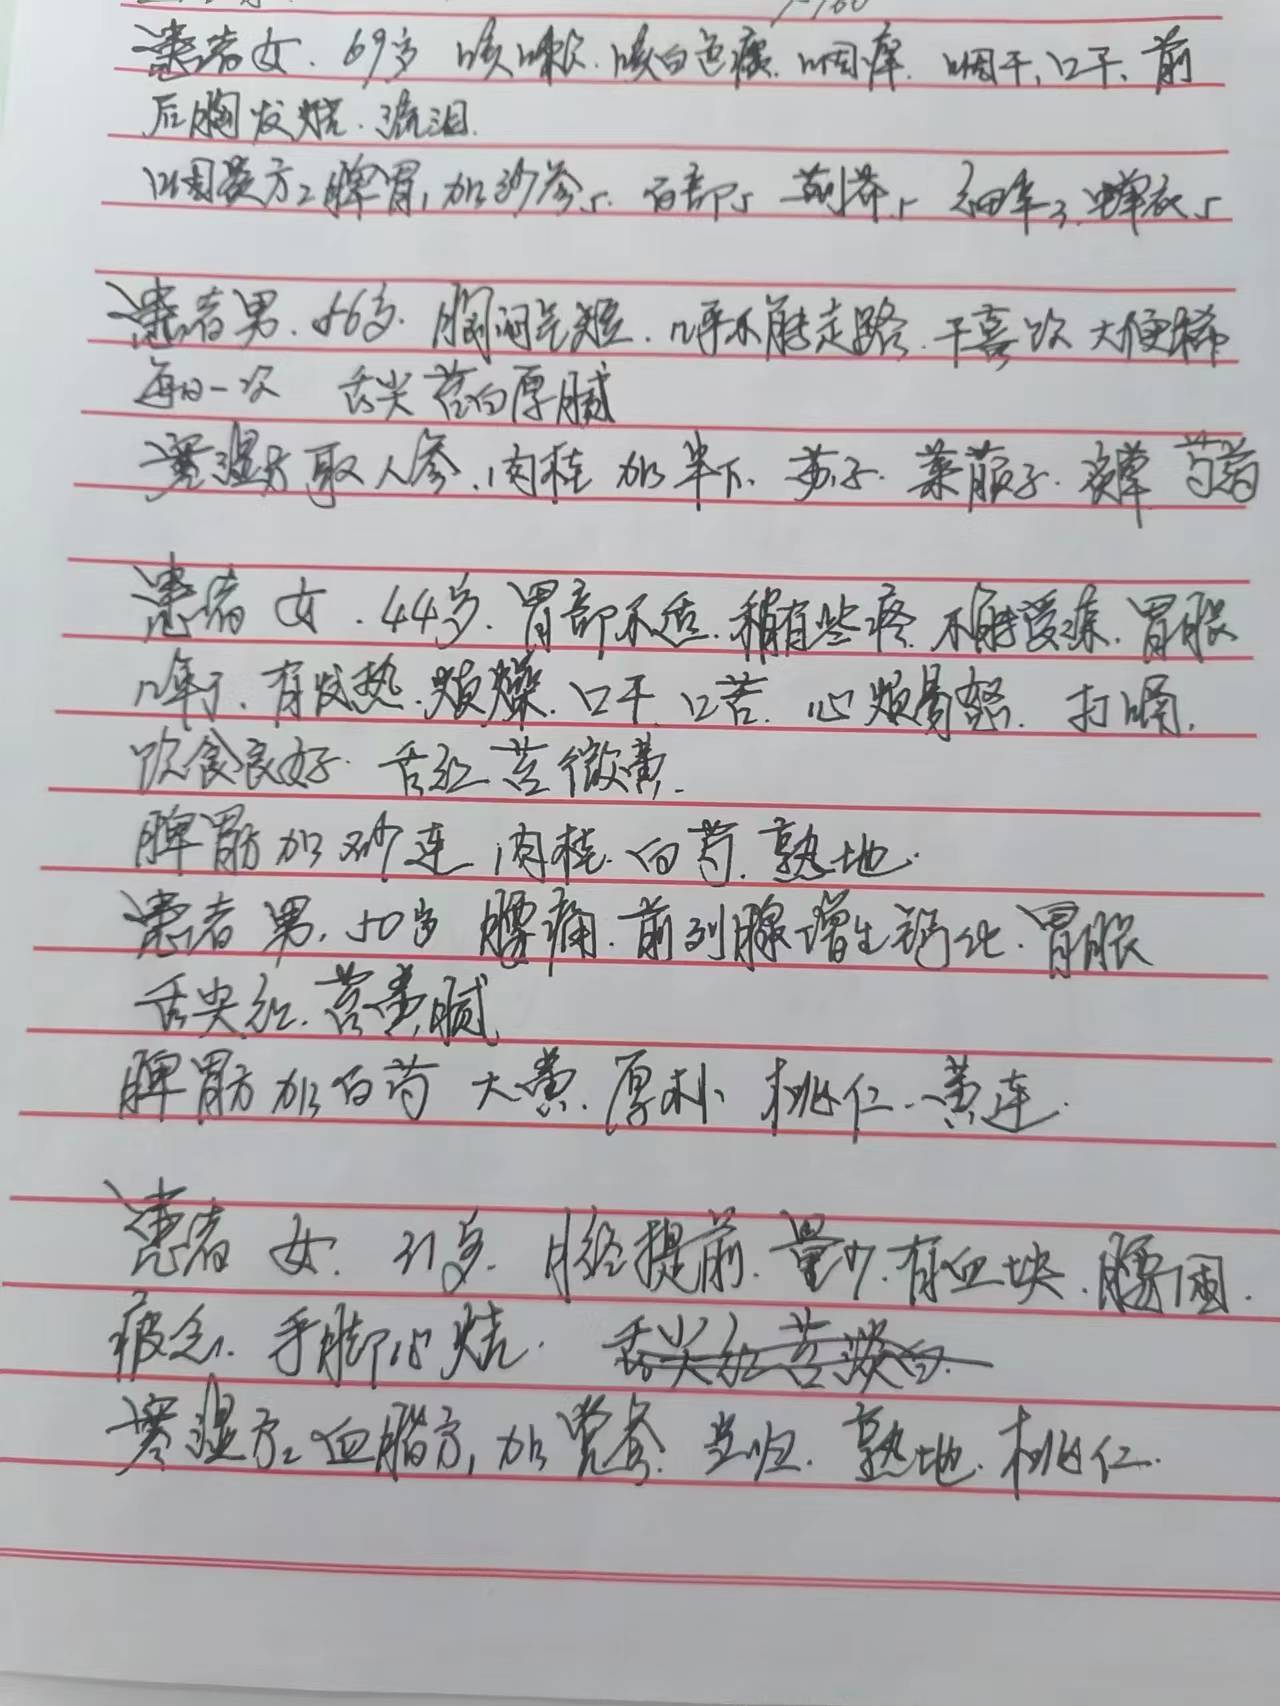 患者女. 69岁 咳嗽. 咳白色痰. 咽痒. 咽干, 口干、前
后胸发烧. 流泪.
方2 脾胃1 加沙参5. 百部5 荆芥5 细辛3. 蝉衣5
患者男. 66岁. 胸闷气短. 几乎不能走路. 干喜饮 大便稀
每日一次 舌尖 苔白厚腻
寒湿方取人参. 肉桂 加半下. 苏子. 莱菔子. 芍药
患者 女. 44岁. 胃部不适. 稍有些疼. 不能受凉. 胃胀
几年了. 有发热. 烦燥. 口干. 口苦. 心烦易怒. 打嗝,
饮食良好. 舌红 苔微黄.
脾胃方加 连 肉桂. 白芍. 熟地.
患者 男. 50岁 腰痛. 前列腺增生钙化. 胃胀
舌尖红. 苔黄腻
脾胃方加白芍 大黄. 厚朴. 桃仁. 黄连.
患者 女. 31岁. 月经提前. 量少. 有血块. 腰困.
疲乏. 手脚心烧.
寒湿方2 血脂方1 加党参. 当归. 熟地. 桃仁.